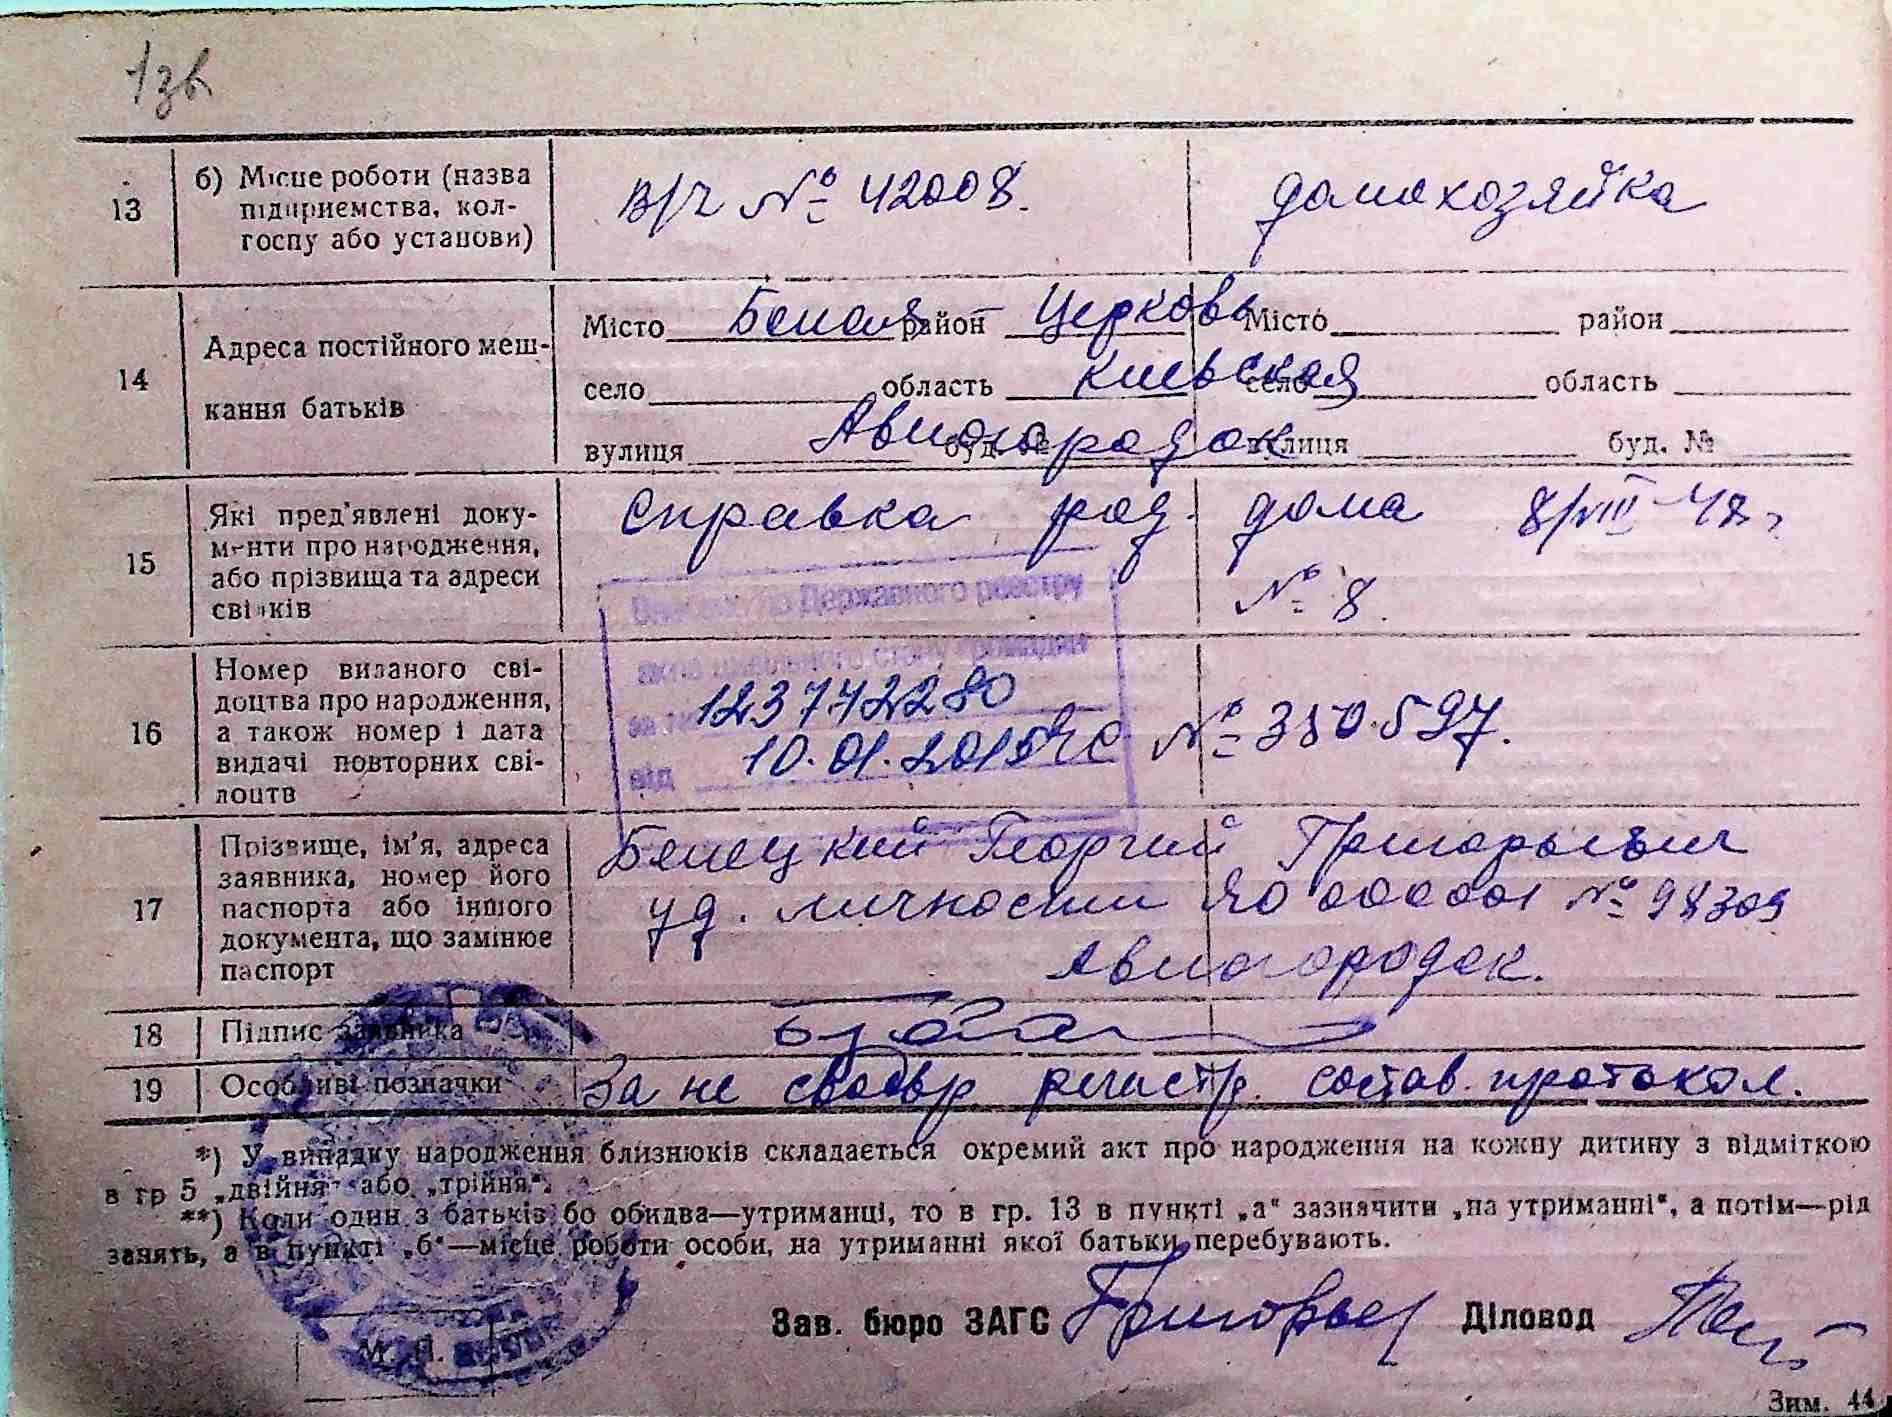 1зв
13 б) Місце роботи (назва підприємства, колгоспу або установи) в/ч № 42008. домохозяйка
14 Адреса постійного мешкання батьків
Місто Белая район Церковь Місто район
село область Киевская село область
вулиця Авиогородок буд. № вулиця буд. №
15 Які пред'явлені документи про народження, або прізвища та адреси свідків
Справка род. дома 8/VIII-47г
№ 8.
Внесено до Державного реєстру
актів цивільного стану громадян
за 123742280
від 10.01.2015
16 Номер виданого свідоцтва про народження, а також номер і дата видачі повторних свідоцтв
№ 350.597.
17 Прізвище, ім'я, адреса заявника, номер його паспорта або іншого документа, що замінює паспорт
Георгий Григорьевич
уд. личности ЯО 000001 № 98309
Авиогородок.
18 Підпис заявника
19 Особливі позначки За не своевр регистр. состав. протокол.
*) У випадку народження близнюків складається окремий акт про народження на кожну дитину з відміткою
в гр 5 „двійня" або „трійня".
**) Коли один з батьків бо обидва—утриманці, то в гр. 13 в пункті „а" зазначити „на утриманні", а потім—рід
занять, а в пункті „б"—місце роботи особи, на утриманні якої батьки перебувають.
Зав. бюро ЗАГС Діловод
М. П.
Зим. 44